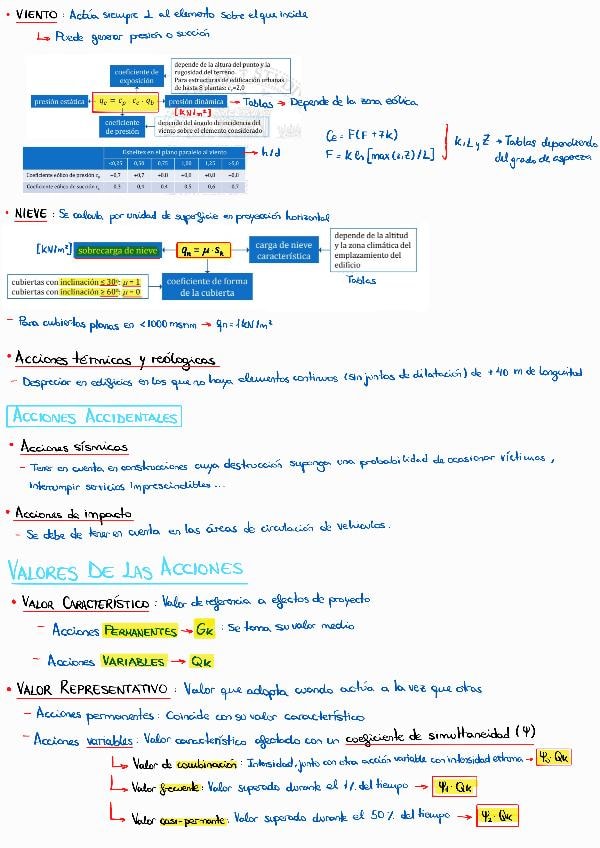 • VIENTO : Actúa siempre ⊥ al elemento sobre el que incide
↳ Puede generar presión o succión
coeficiente de exposición
depende de la altura del punto y la rugosidad del terreno.
Para estructuras de edificación urbanas de hasta 8 plantas: cₑ=2,0
presión estática
qₑ = cₚ · cₑ · q_b
presión dinámica
→ Tablas → Depende de la zona eólica
[KN/m²]
coeficiente de presión
depende del ángulo de incidencia del viento sobre el elemento considerado
Ce = F(F + 7k)
F = K ln [max(z,Z)/L]
K, L y Z → Tablas dependiendo del grado de aspereza
Esbeltez en el plano paralelo al viento → h/d
<0,25 0,50 0,75 1,00 1,25 >5,0
Coeficiente eólico de presión cₚ +0,7 +0,7 +0,8 +0,8 +0,8 +0,8
Coeficiente eólico de succión cₛ -0,3 -0,4 -0,4 -0,5 -0,6 -0,7
• NIEVE : Se calcula por unidad de superficie en proyección horizontal
[KN/m²] sobrecarga de nieve
qₙ = μ · sₖ
carga de nieve característica
depende de la altitud y la zona climática del emplazamiento del edificio
Tablas
cubiertas con inclinación ≤ 30º: μ = 1
cubiertas con inclinación ≥ 60º: μ = 0
coeficiente de forma de la cubierta
- Para cubiertas planas en <1000 msnm → qn = 1 kN/m²
• Acciones térmicas y reólogicas
- Despreciar en edificios en los que no haya elementos continuos (sin juntas de dilatación) de +40 m de longuitud
ACCIONES ACCIDENTALES
• Acciones sísmicas
- Tener en cuenta en construcciones cuya destrucción suponga una probabilidad de ocasionar víctimas,
interrumpir servicios imprescindibles ...
• Acciones de impacto
- Se debe de tener en cuenta en las áreas de circulación de vehículos.
VALORES DE LAS ACCIONES
• VALOR CARACTERÍSTICO : Valor de referencia a efectos de proyecto
- Acciones PERMANENTES → Gk : Se toma su valor medio
- Acciones VARIABLES → Qk
• VALOR REPRESENTATIVO : Valor que adopta cuando actúa a la vez que otras
- Acciones permanentes: Coincide con su valor característico
- Acciones variables: Valor característico afectado con un coeficiente de simultaneidad (Ψ)
↳ Valor de combinación: Intensidad, junto con otra acción variable con intensidad extrema → Ψ₀·Qk
↳ Valor frecuente: Valor superado durante el 1% del tiempo → Ψ₁·Qk
↳ Valor casi-permante: Valor superado durante el 50% del tiempo → Ψ₂·Qk